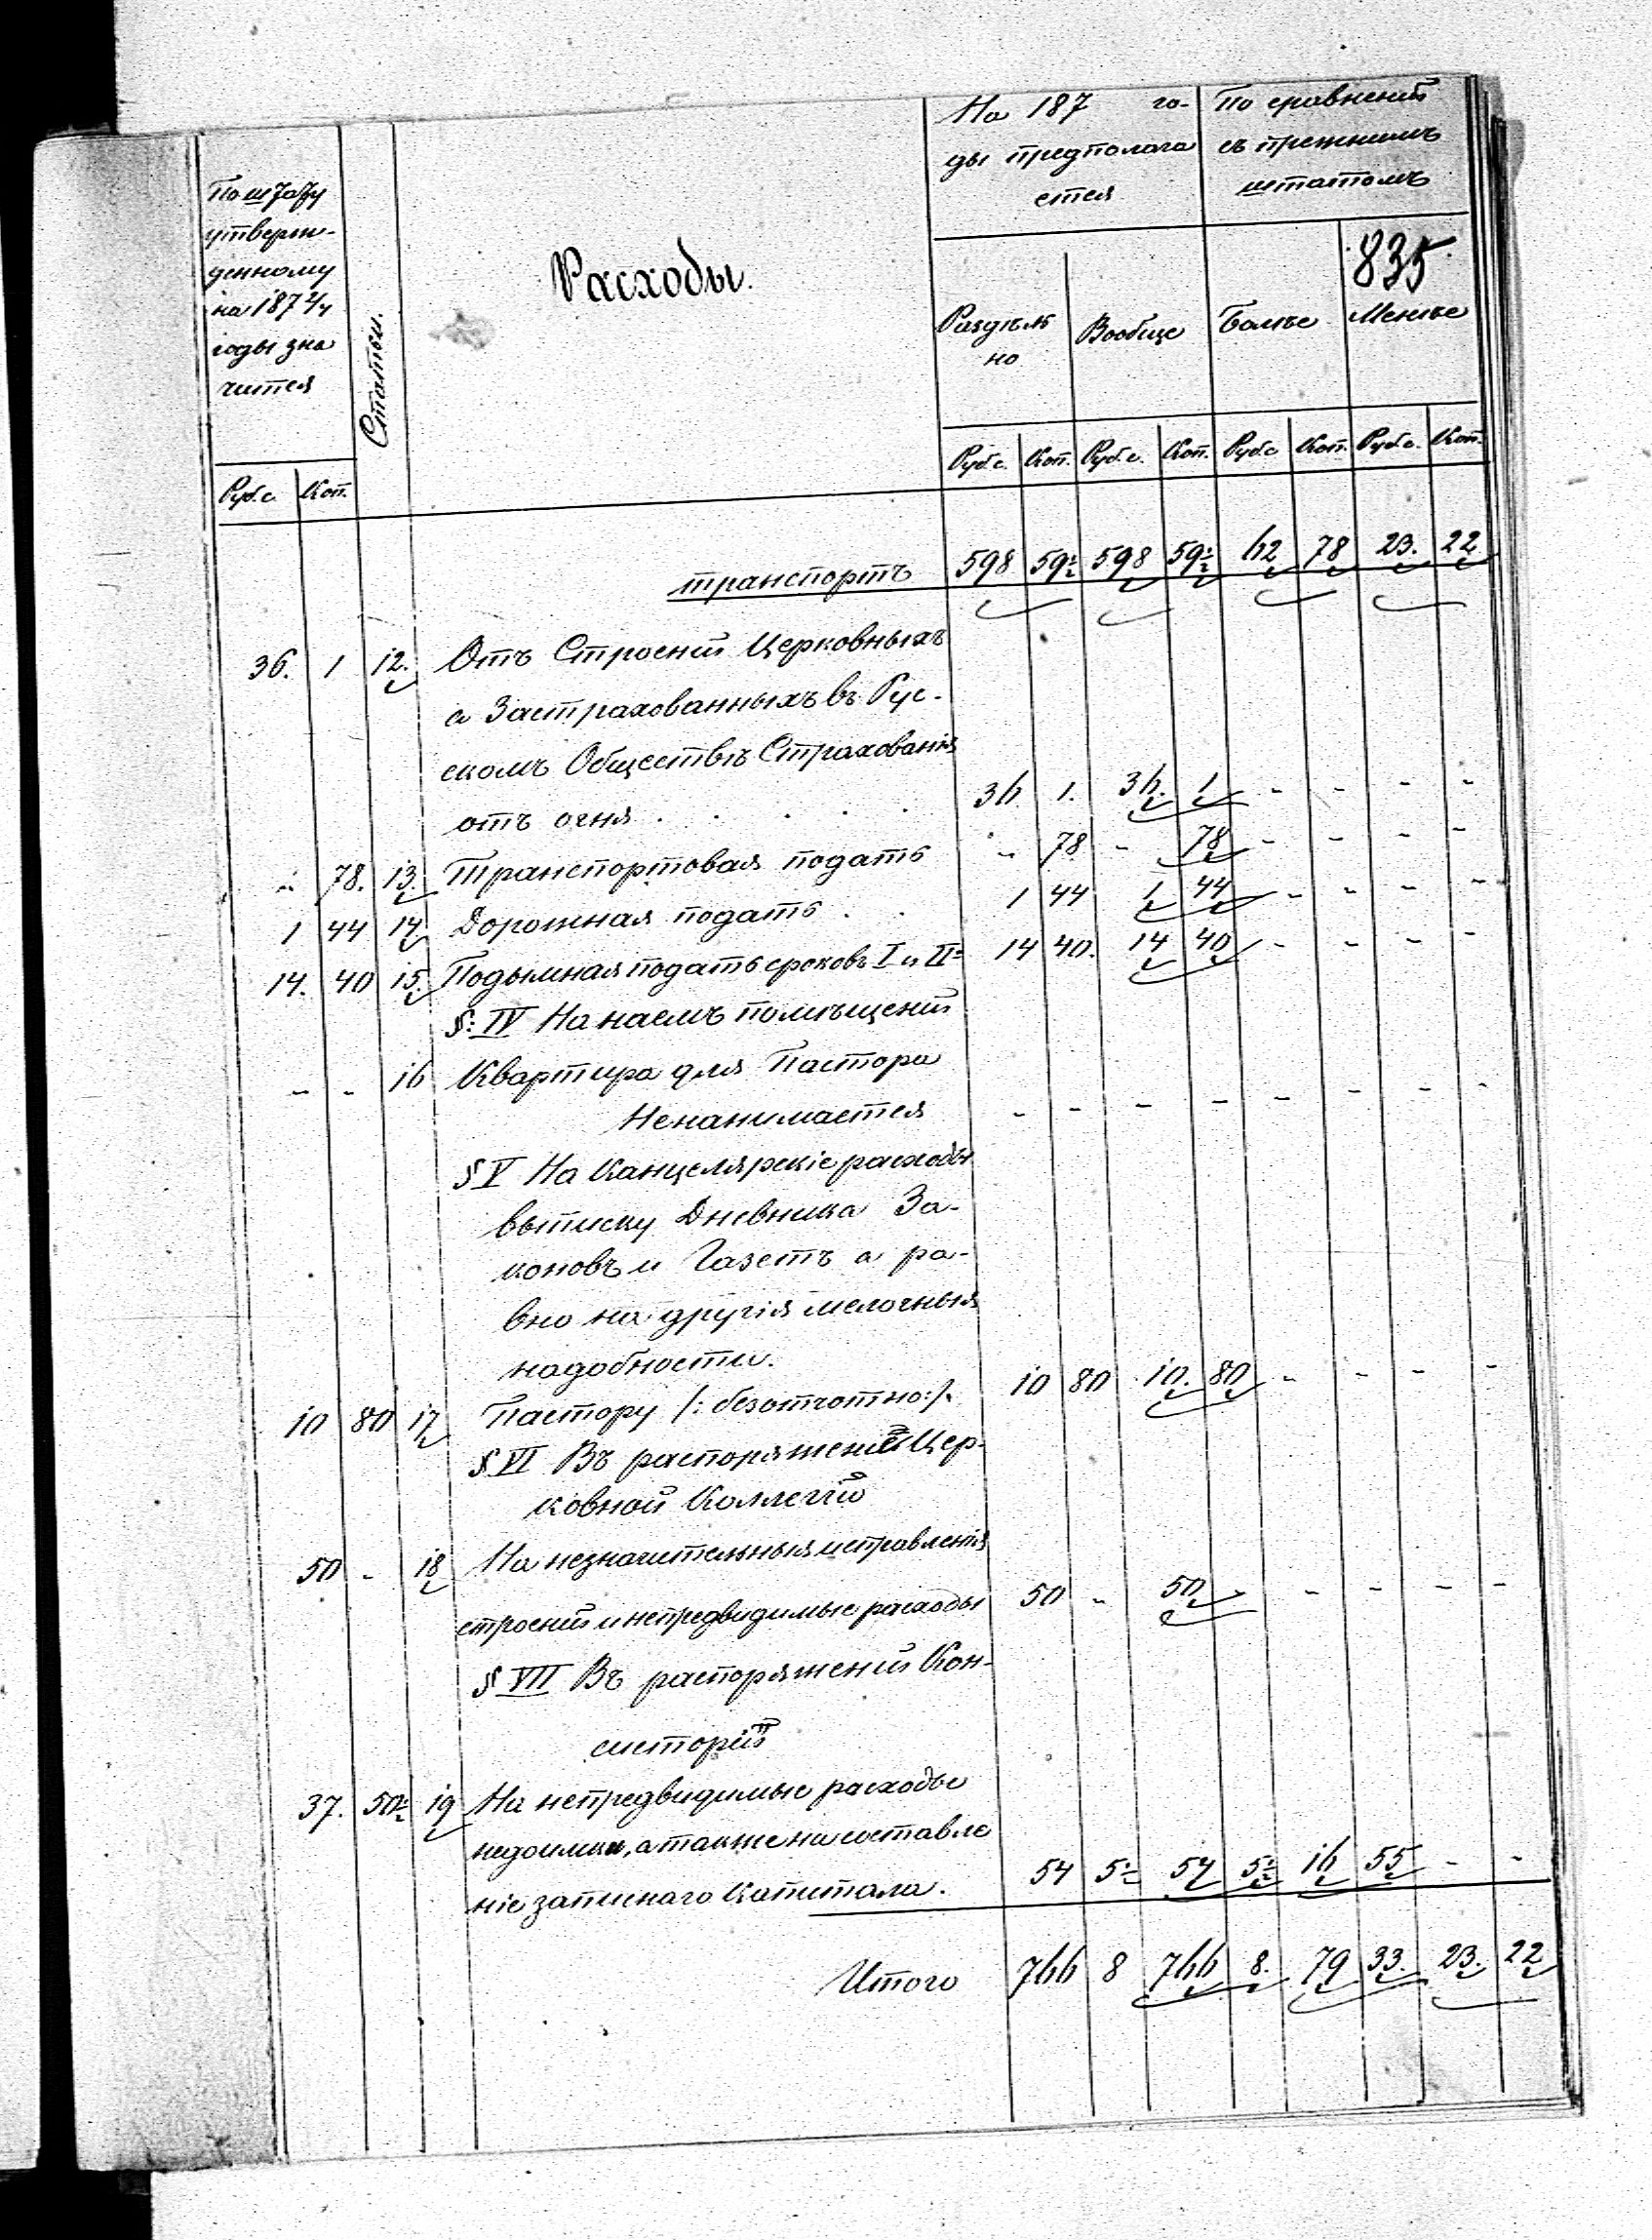 По штату
утверж-
денному
на 187 2/4
годы зна
чится
Статьи.
Расходы.
На 187 го-
ды предполага
ется
По сравненiи
съ прежнимъ
штатомъ
835
Раздѣль
но
Вообще
Болѣе
Менѣе
Руб.с. Коп.
Руб.с. Коп. Руб.с. Коп. Руб.с Коп. Руб.с. Коп.
транспортъ 598 59½ 598 59½ 62 78 23. 22
36. 1 12. Отъ Строенiй Церковныхъ
а Застрахованныхъ въ Рус-
скомъ Обществѣ Страхованiя
отъ огня . . . . 36 1. 36. 1 - - - -
- 78. 13. Транспортовая подать - 78 - 78 - - - -
1 44 14 Дорожная подать . . 1 44 1 44 - - - -
14. 40 15. Подымная подать сроковъ I и II 14 40. 14 40 - - - -
§: IV На наемъ помѣщенiй
- - 16 Квартира для Пастора
Ненанимается - - - - - - - -
§ V На Канцелярскiе расходы
выписку Дневника За-
коновъ и Газетъ а ра-
вно на другiя мелочныя
надобности.
10 80 17 Пастору /: безотчотно:/. 10 80 10. 80 - - - -
§ VI Въ распоряженiе Цер-
ковной Коллегiи
50 - 18 На незначительныя исправленiя
строенiй и непредвидимые расходы 50 - 50 - - - - -
§ VII Въ распоряженiи Кон-
систорiи
37. 50½ 19 На непредвидимые расходы
недоимки, а также на составле
нiе записнаго Капитала. 54 5½ 54 5½ 16 55 - -
Итого 766 8 766 8. 79 33. 23. 22